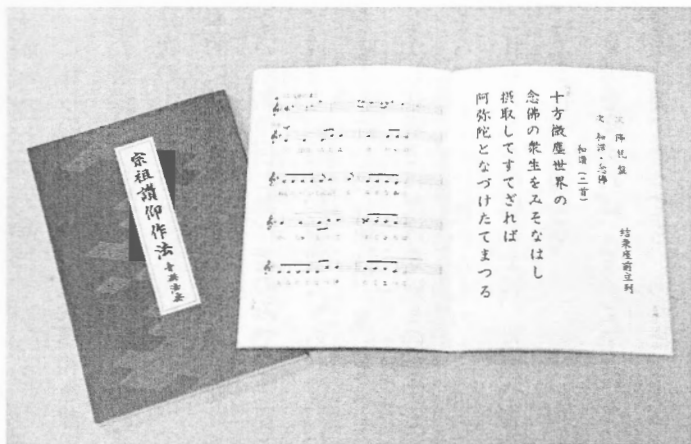 宗祖讃仰作法
音楽法要
結衆座前立列
次 降礼盤
次 和讃・念佛
和讃(三首)
十方微塵世界の
念佛の衆生をみそなはし
摂取してすてざれば
阿弥陀となづけたてまつる